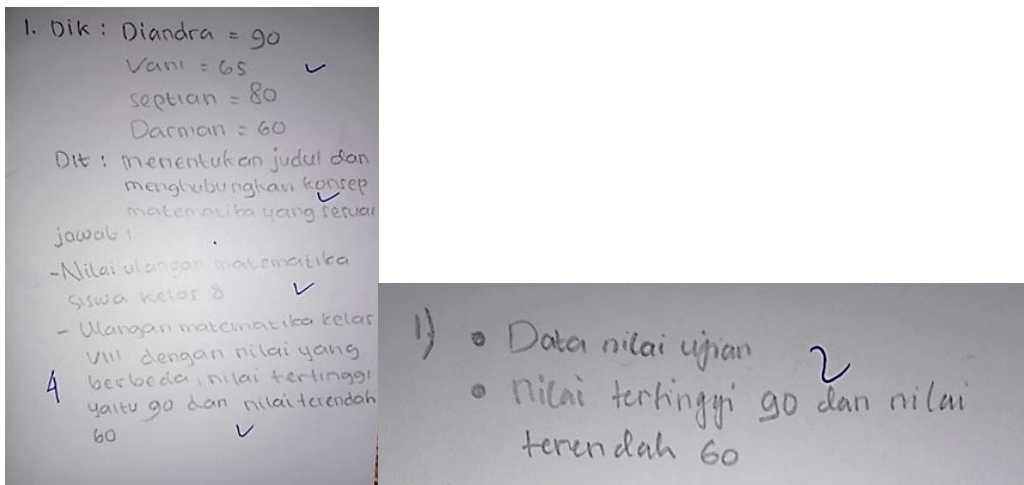 1. Dik : Diandra = 90
Vani = 65
Septian = 80
Darman = 60
Dit : menentukan judul dan
menghubungkan konsep
matematika yang sesuai
jawab :
- Nilai ulangan matematika
siswa kelas 8
- Ulangan matematika kelas
VIII dengan nilai yang
berbeda, nilai tertinggi
4
yaitu 90 dan nilai terendah
60
1) • Data nilai ujian
2
• nilai tertinggi 90 dan nilai
terendah 60